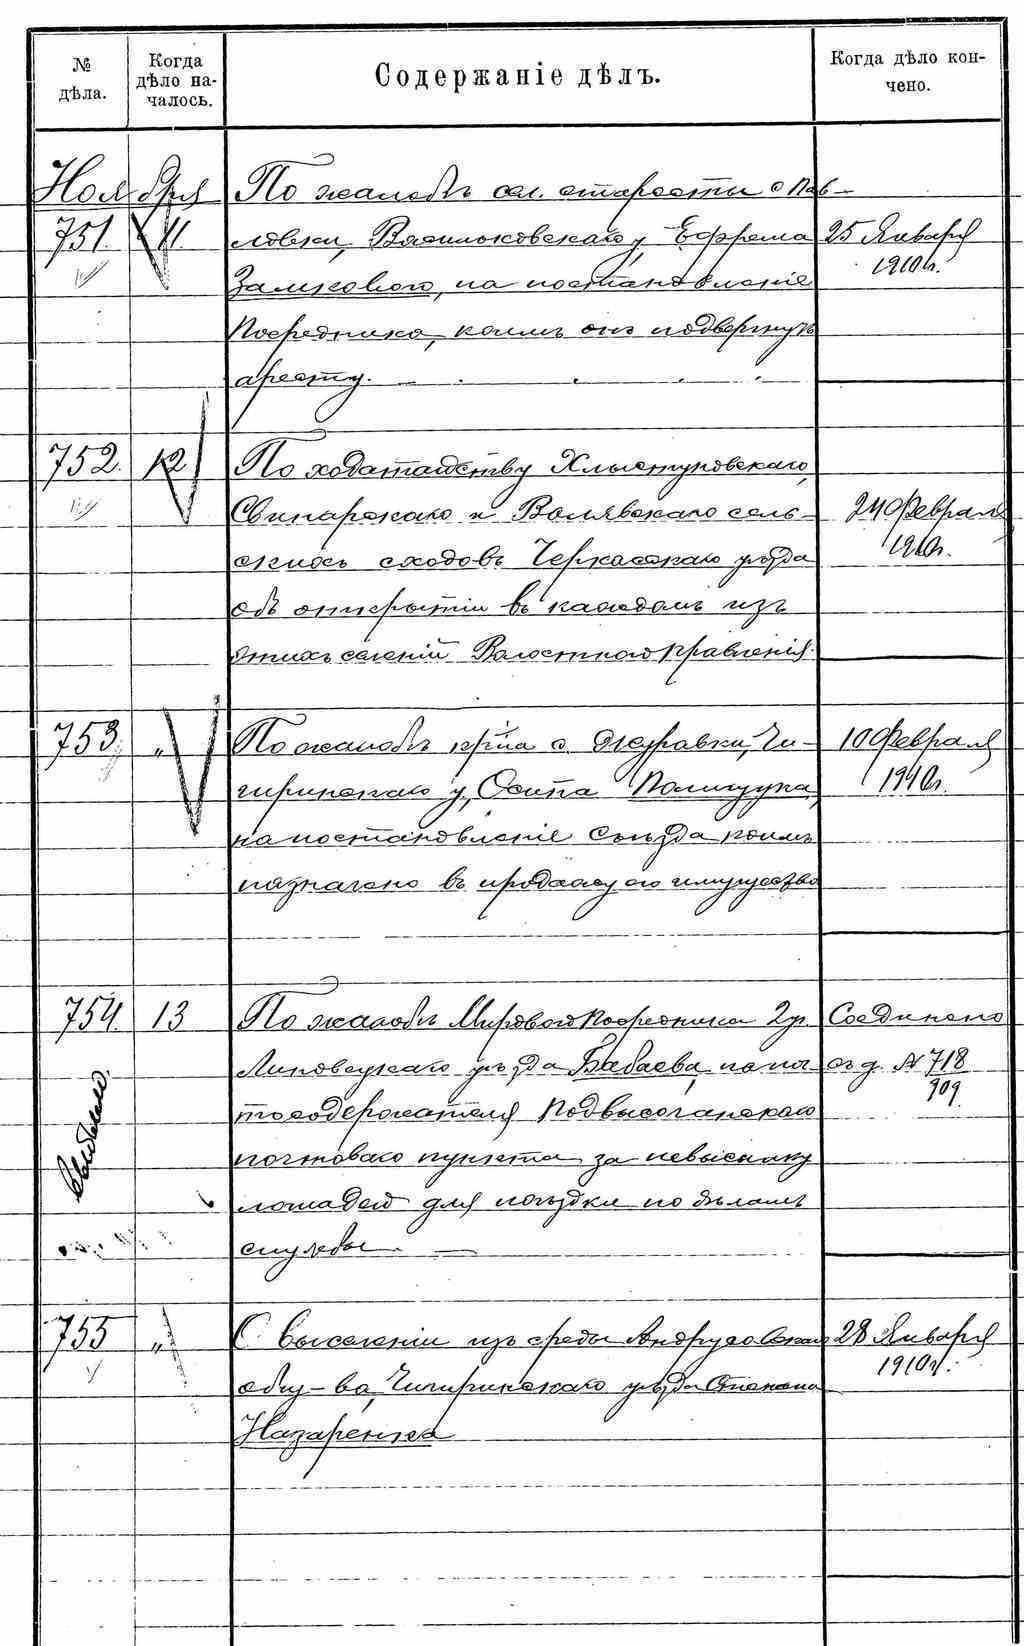 № дѣла.
Когда дѣло на-
чалось.
Содержаніе дѣлъ.
Когда дѣло кон-
чено.
Ноября
По жалобѣ сел. старосты с Пав-
751. 11. ловки, Васильковскаго у, Ефрема 25 Января
Замкового, на постановленіе 1910 г.
Посредника, коимъ онъ подвергнутъ
аресту.
752. 12 По ходатайству Хлыстуновскаго,
Свинарскаго и Валявскаго сель- 24 Февраля
скихъ сходовъ Черкасскаго уѣзда 1910 г.
объ открытіи въ каждомъ изъ
этихъ селеній Волостного Правленія.
753 " По жалобѣ кр-на с. Журавки, Чи- 10 Февраля
гиринскаго у, Осипа Полищука, 1910 г.
на постановленіе Съѣзда коимъ
назначено въ продажу его имущество
754. 13 По жалобѣ Мирового Посредника 2 уч. Соединено
Липовецкаго уѣзда Бабаева на поч- съ д. № 718
тосодержателя Подвысочанскаго 909.
почтоваго пункта за невысылку
лошадей для поѣздки по дѣламъ
службы.
755 " О выселеніи изъ среды Андрусовскаго 28 Января
общ-ва, Чигиринскаго уѣзда Степана 1910 г.
Назаренка